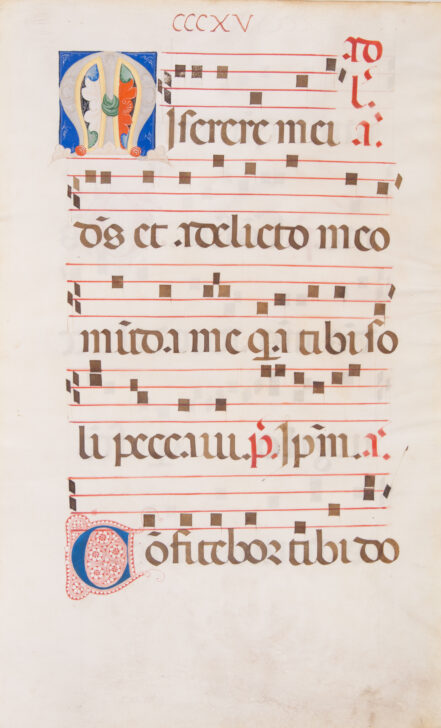 CCCXV
ad
l.
Miserere mei a.
ds et a delicto meo
munda me qa tibi so
li peccaui. p. Ipm. a.
Cōfitebor tibi do